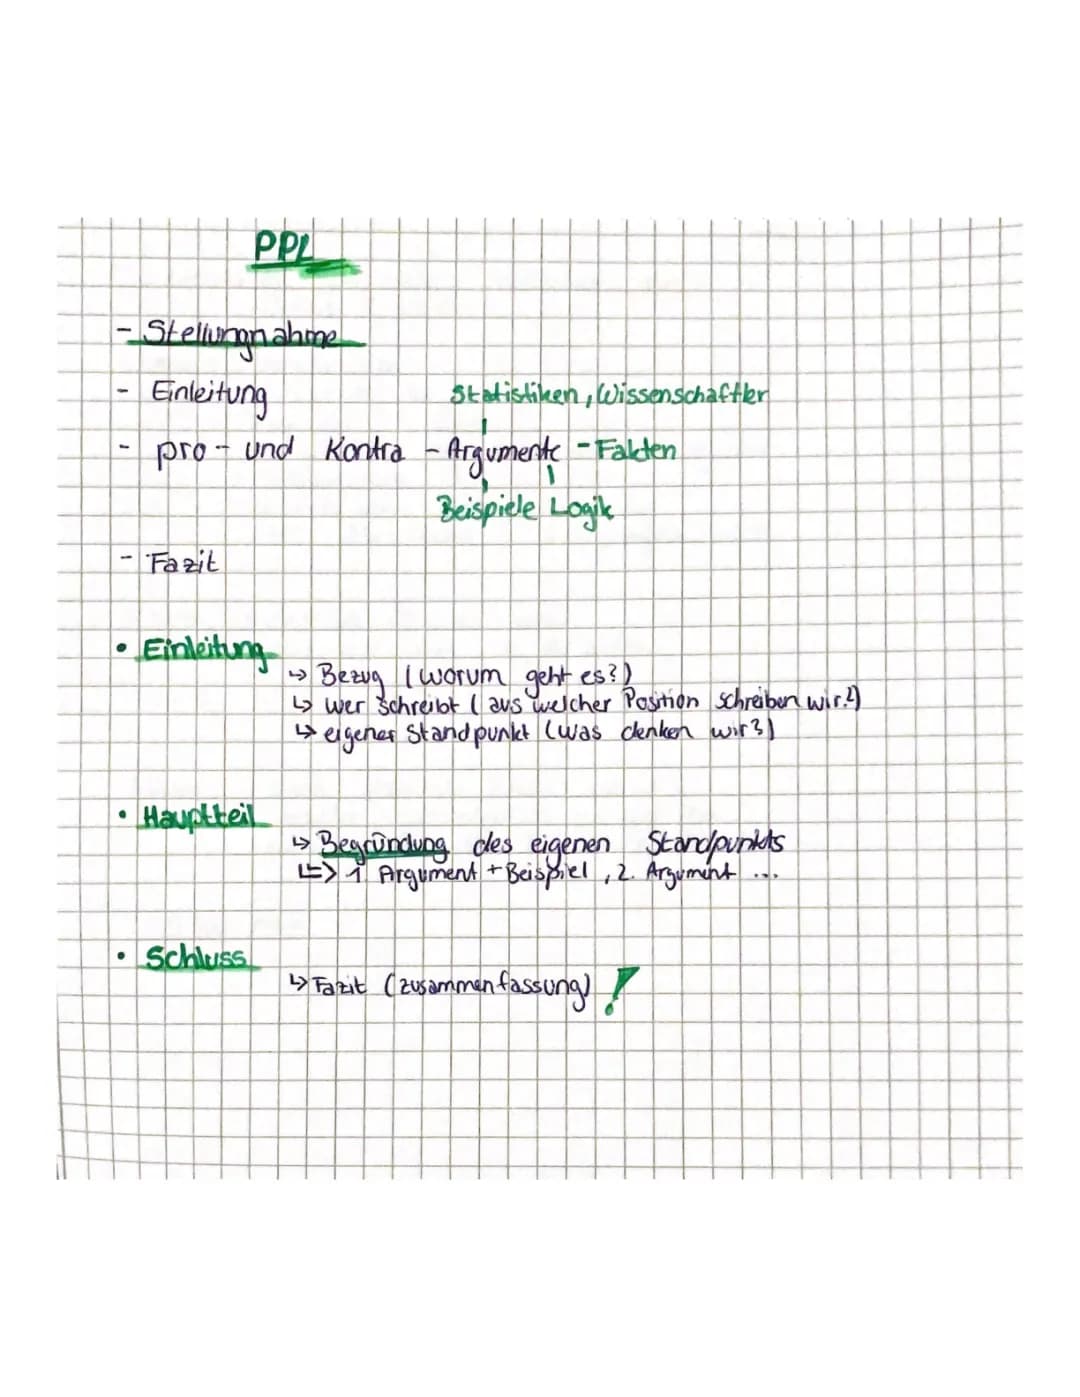 PPL
- Stellungnahme
- Einleitung
Statistiken, Wissenschaftler
- pro- und Kontra - Argumente - Fakten
Beispiele Logik
- Fazit
• Einleitung
↳ Bezug (worum geht es?)
↳ wer schreibt (aus welcher Position schreiben wir?)
↳ eigener Standpunkt (was denken wir?)
• Hauptteil
↳ Begründung des eigenen Standpunkts
↳> 1. Argument + Beispiel, 2. Argument ...
• Schluss
↳ Fazit (zusammenfassung) !